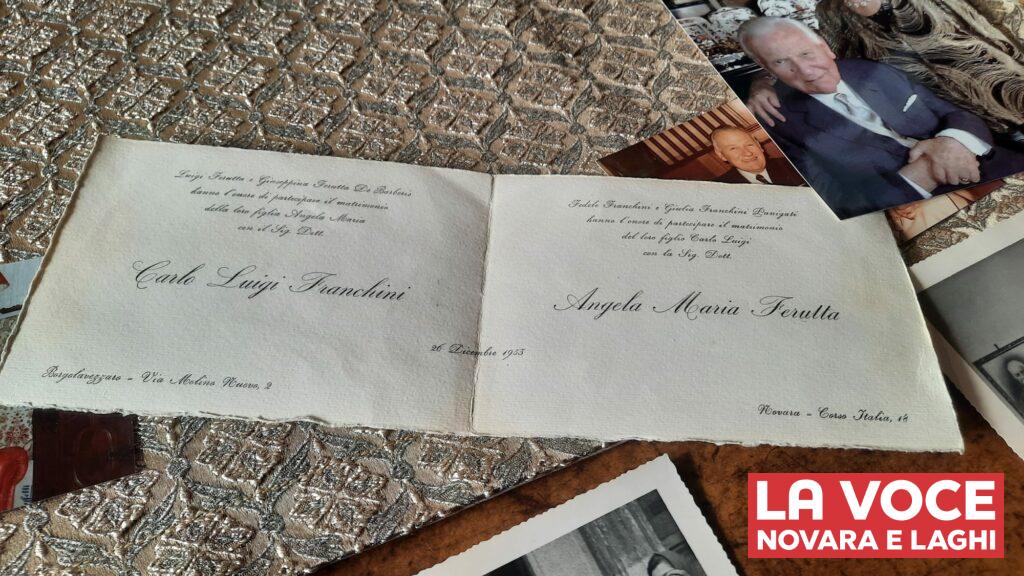 Luigi Ferutta e Giuseppina Ferutta De Barberis
hanno l'onore di partecipare il matrimonio
della loro figlia Angela Maria
con il Sig. Dott.
Carlo Luigi Franchini
Borgolavezzaro - Via Molino Nuovo, 2
26 Dicembre 1953
Fedele Franchini e Giulia Franchini Panigati
hanno l'onore di partecipare il matrimonio
del loro figlio Carlo Luigi
con la Sig. Dott.
Angela Maria Ferutta
Novara - Corso Italia, 18
LA VOCE
NOVARA E LAGHI